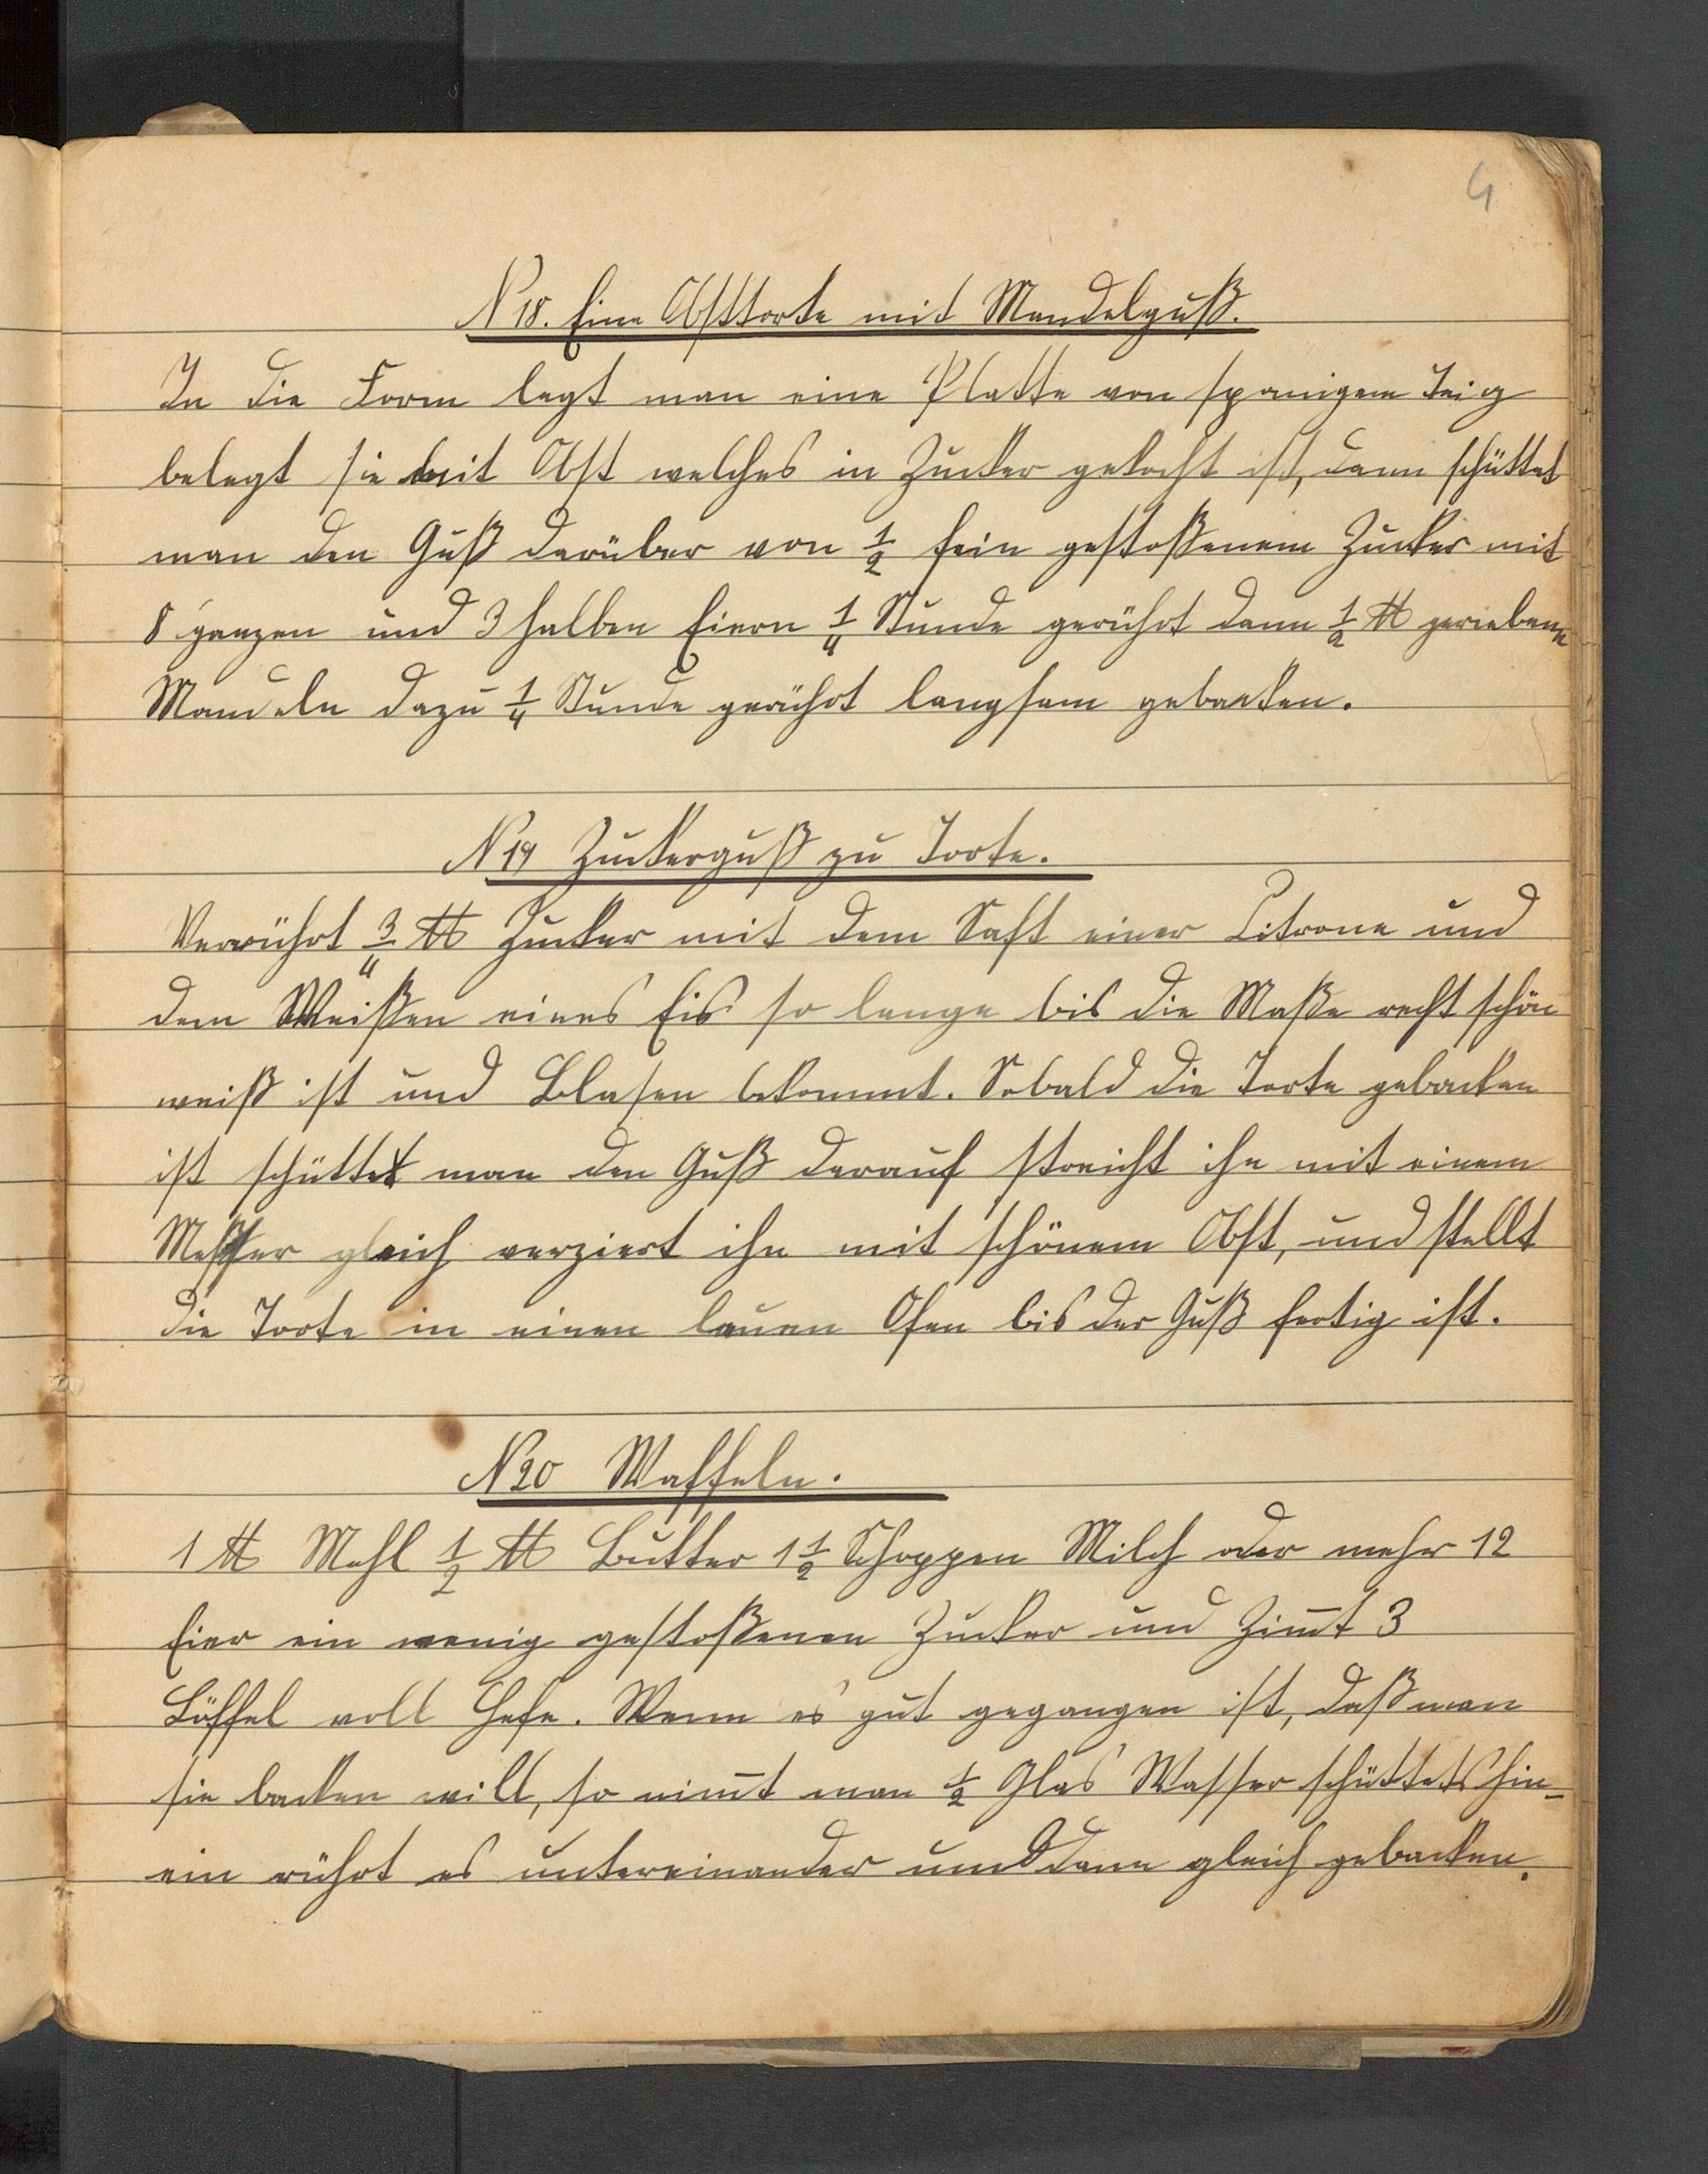 4
N 18. Eine Obsttorte mit Mandelguß.
In die Form legt man eine Platte von spanigem Teig
belegt sie mit Obst welches in Zucker gekocht ist, dann schüttet
man den Guß darüber von ½ fein gestoßenem Zucker mit
8 ganzen und 3 halben Eiern ¼ Stunde gerührt dann ½ ℔ geriebene
Mandeln dazu ¼ Stunde gerührt langsam gebacken.
N 19 Zuckerguß zu Torte.
Verrührt ¾ ℔ Zucker mit dem Saft einer Citrone und
dem Weißen eines Eis so lange bis die Maße recht schön
weiß ist und Blasen bekommt. Sobald die Torte gebacken
ist schüttet man den Guß darauf streicht ihn mit einem
Messer gleich verziert ihn mit schönem Obst, und stellt
die Torte in einen lauen Ofen bis der Guß fertig ist.
N 20 Waffeln.
1 ℔ Mehl ½ ℔ Butter 1½ Schoppen Milch oder mehr 12
Eier ein wenig gestoßenen Zucker und Zim̅t 3
Löffel voll Hefe. Wenn es gut gegangen ist, daß man
sie backen will, so nim̅t man ½ Glas Wasser schüttets hin-
ein rührt es untereinander und dann gleich gebacken.